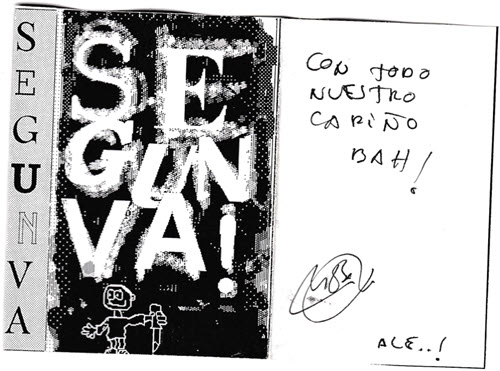 SEGUNVA
SE
GUN
VA!
CON TODO
NUESTRO
CARIÑO
BAH!
ALE..!